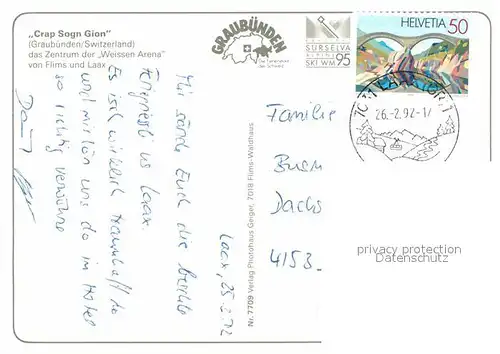 „Crap Sogn Gion"
(Graubünden/Switzerland)
das Zentrum der „Weissen Arena"
von Flims und Laax
GRAUBÜNDEN
Die Ferienecke
der Schweiz
SURSELVA
ALPINE
SKI WM 95
HELVETIA 50
7031 LAAX
26.-2.92-17
Laax, 25.2.92
Mir sände Euch die beschte
Feriegrüessli us Laax.
Es isch würklich traumhaft do
und mir lön uns do im Hotel
so richtig verwöhne
Nr. 7709 Verlag Photohaus Geiger, 7018 Flims-Waldhaus
Familie
Dachs
4153
privacy protection
Datenschutz